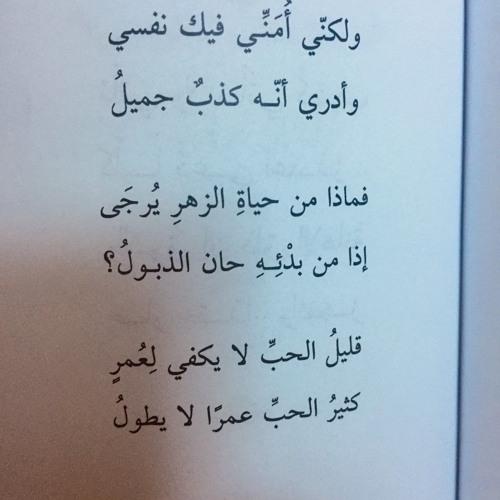 ولكنّي أُمَنِّي فيك نفسي
وأدري أنّه كذبٌ جميلُ
فماذا من حياةِ الزهرِ يُرجَى
إذا من بدْئِهِ حان الذبولُ؟
قليلُ الحبِّ لا يكفي لِعُمرٍ
كثيرُ الحبِّ عمرًا لا يطولُ